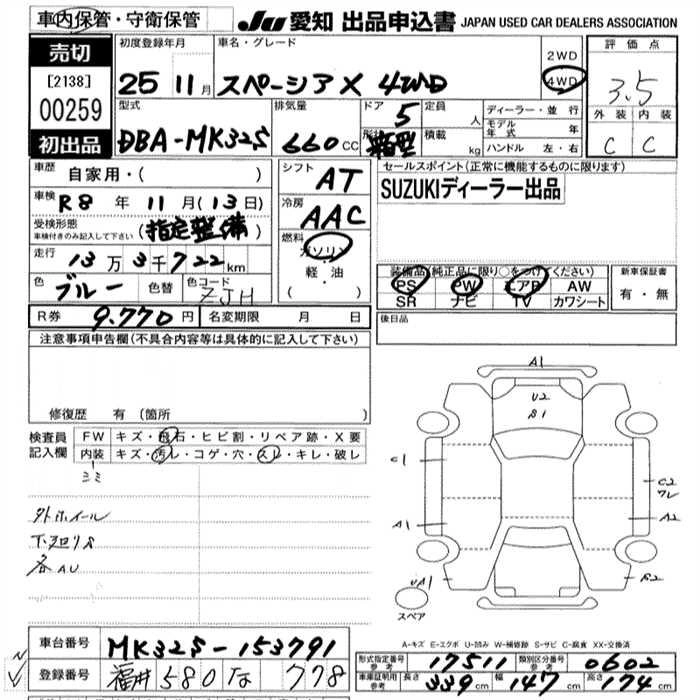 車内保管・守衛保管
JU 愛知 出品申込書 JAPAN USED CAR DEALERS ASSOCIATION
売切
[2138]
00259
初出品
初度登録年月
25 11月
車名・グレード
スペーシア X 4WD
2WD
4WD
評価点
3.5
外装 内装
C C
型式
DBA-MK32S
排気量
660 CC
ドア
5
形状
箱型
定員
人
積載
kg
ディーラー・並行
モデル年式 年
ハンドル 左・右
車歴
自家用・( )
車検
R8 年 11月(13日)
受検形態
車検付きのみ記入して下さい
(指定整備)
走行
13万3千722km
色
ブルー
色替
色コード
ZJH
シフト
AT
冷房
AAC
燃料
ガソリン
軽・油
( )
セールスポイント(正常に機能するものに限ります)
SUZUKIディーラー出品
装備品(純正品に限り○をつけてください)
PS PW エアB AW
SR ナビ TV カワシート
新車保証書
有・無
R券 9.770円 名変期限 月 日
後日品
注意事項申告欄(不具合内容等は具体的に記入して下さい)
修復歴 有 (箇所
検査員
記入欄
FW キズ・飛石・ヒビ割・リペア跡・X要
内装 キズ・汚レ・コゲ・穴・スレ・キレ・破レ
シミ
外ホイール
下廻りS
各AU
A1
U2
B1
C1
C2
ワレ
A1
A2
UA1
B2
スペア
A-キズ E-エクボ U-凹み W-補修跡 S-サビ C-腐食 XX-交換済
車台番号 MK32S-153791
登録番号 福井 580 な 778
形式指定番号
参考
17511
類別区分番号
参考
0602
車庫証明用
参考
長さ 339cm 幅 147cm 高さ 174cm